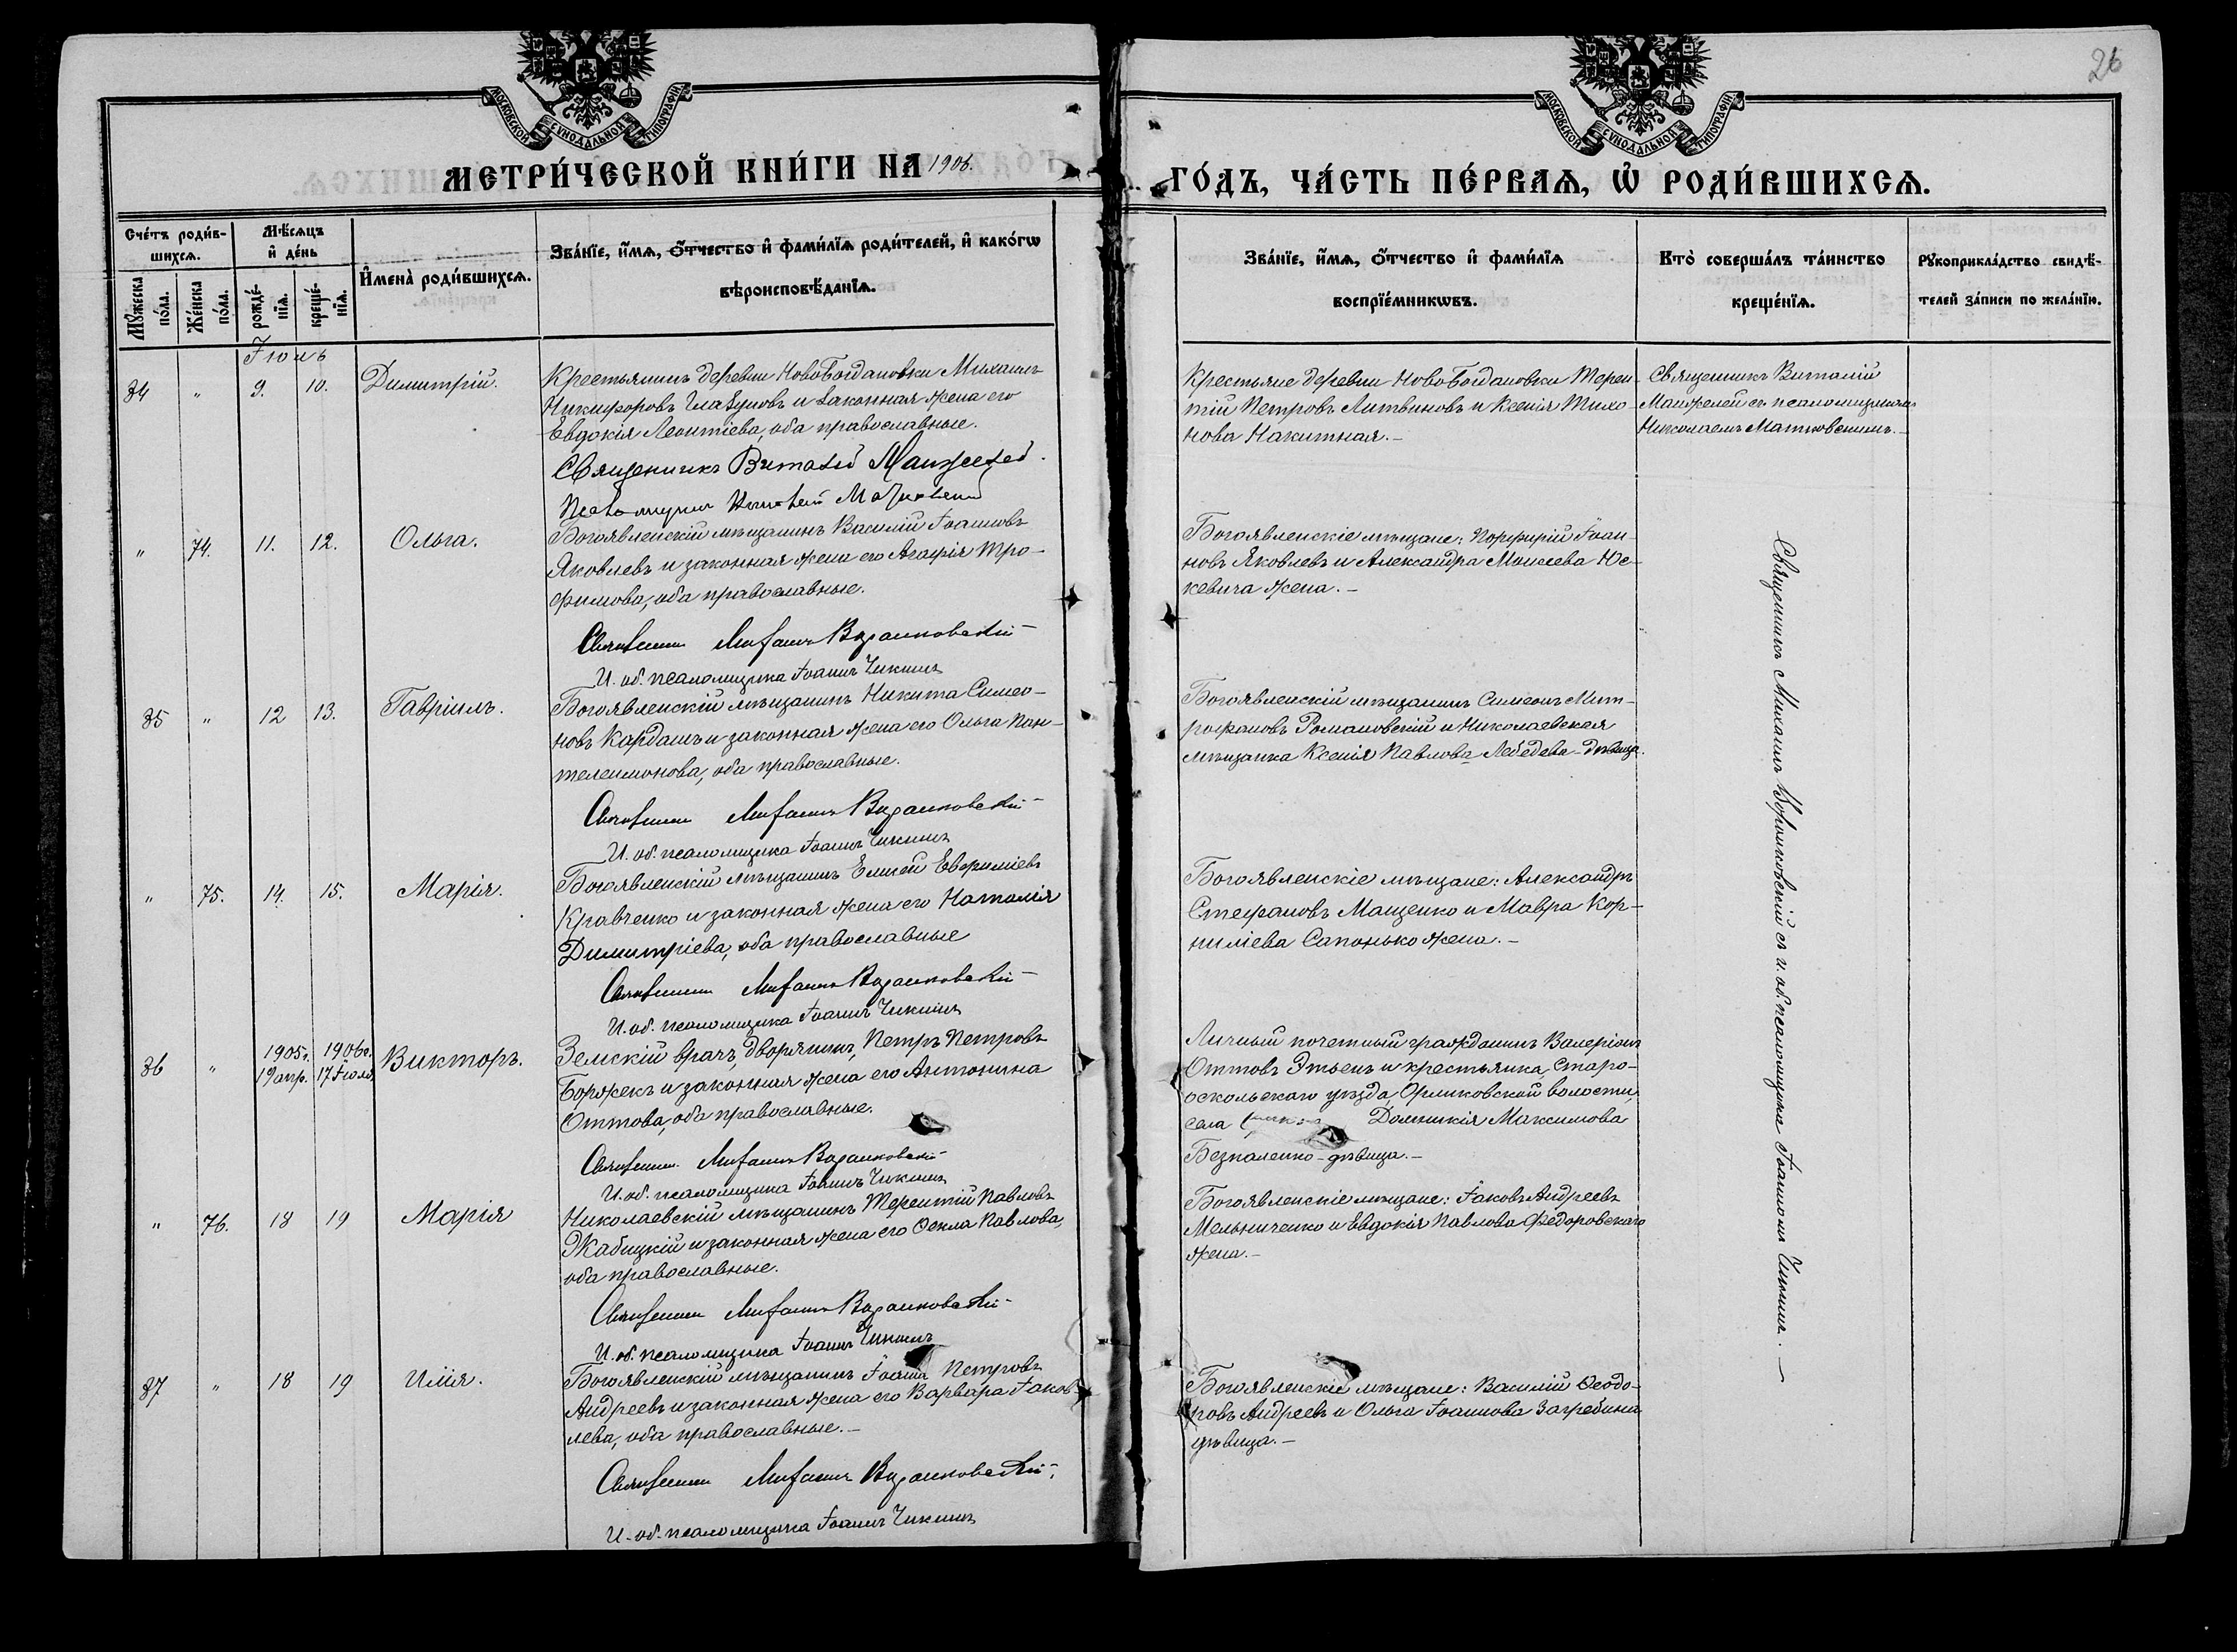 26
МОСКОВСКОЙ СУНОДАЛЬНОЙ ТИПОГРАФІИ
МОСКОВСКОЙ СУНОДАЛЬНОЙ ТИПОГРАФІИ
МЕТРИ́ЧЕСКОЙ КНИ́ГИ НА 1906.
ГО́ДЪ, ЧА́СТЬ ПЕ́РВАѦ, Ѡ҆ РОДИ́ВШИХСѦ.
Сче́тъ роди́в-
шихсѧ.
Мꙋ́жеска по́ла.
Же́нска по́ла.
Мѣ́сѧцъ
и҆ де́нь
рожде́-
нїѧ.
креще́-
нїѧ.
И҆мена̀ роди́вшихсѧ.
Зва́нїе, и҆́мѧ, ѻ҆́тчество и҆ фами́лїѧ роди́телей, и҆ како́гѡ
вѣроисповѣ́данїѧ.
Зва́нїе, и҆́мѧ, ѻ҆́тчество и҆ фами́лїѧ
воспрїе́мникѡвъ.
Кто̀ соверша́лъ та́инство
креще́нїѧ.
Рꙋкоприкла́дство свидѣ́-
телей за́писи по жела́нїю.
Іюль
34 " 9. 10. Димитрій.
Крестьянинъ деревни НовоБогдановки Михаилъ
Никифоровъ Глазуновъ и законная жена его
Евдокія Леонтіева, оба православные.
Священникъ Виталій Манжелей.
Псаломщикъ Николай Матковскій
Крестьяне деревни НовоБогдановки Терен-
тій Петровъ Литвиновъ и Ксенія Тихо-
нова Накитная.-
Священникъ Виталій
Манжелей съ псаломщикомъ
Николаемъ Матковскимъ.-
" 74. 11. 12. Ольга.
Богоявленскій мѣщанинъ Василій Іоанновъ
Яковлевъ и законная жена его Агафія Тро-
фимова, оба православные.
Священникъ Михаилъ Воранковскій
И. об. псаломщика Іоаннъ Чикинъ
Богоявленскіе мѣщане: Порфирій Іоан-
новъ Яковлевъ и Александра Моисеева Юс-
кевича жена.-
35 " 12 13. Гавріилъ.
Богоявленскій мѣщанинъ Никита Симео-
новъ Кардашъ и законная жена его Ольга Пан-
телеимонова, оба православные.
Священникъ Михаилъ Воранковскій
И. об. псаломщика Іоаннъ Чикинъ
Богоявленскій мѣщанинъ Симеонъ Мит-
рофановъ Романовскій и Николаевская
мѣщанка Ксенія Павлова Лебедева-дѣвица.
" 75. 14. 15. Марія.
Богоявленскій мѣщанинъ Елисей Евфиміевъ
Кравченко и законная жена его Наталія
Димитріева, оба православные
Священникъ Михаилъ Воранковскій
И. об. псаломщика Іоаннъ Чикинъ
Богоявленскіе мѣщане: Александръ
Стефановъ Мащенко и Мавра Кор-
ниліева Сапонько жена.-
36 " 1905г. 19 апр. 1906г. 17 Іюля Викторъ.
Земскій врачъ, дворянинъ, Петръ Петровъ
Боржекъ и законная жена его Антонина
Оттова, оба православные.
Священникъ Михаилъ Воранковскій
И. об. псаломщика Іоаннъ Чикинъ
Личный почетный гражданинъ Валеріанъ
Оттовъ Этьенъ и крестьянка, Старо-
оскольскаго уѣзда, Орликовской волости,
села Домникія Максимова
Безпаленко-дѣвица.-
" 76. 18 19 Марія
Николаевскій мѣщанинъ Терентій Павловъ
Жабицкій и законная жена его Ѳекла Павлова,
оба православные.
Священникъ Михаилъ Воранковскій
И. об. псаломщика Іоаннъ Чикинъ
Богоявленскіе мѣщане: Іаковъ Андреевъ
Мельниченко и Евдокія Павлова Федоровскаго
жена.-
37 " 18 19 Илія.
Богоявленскій мѣщанинъ Іоаннъ Петровъ
Андреевъ и законная жена его Варвара Іаков-
лева, оба православные.-
Священникъ Михаилъ Воранковскій
И. об. псаломщика Іоаннъ Чикинъ
Богоявленскіе мѣщане: Василій Ѳеодо-
ровъ Андреевъ и Ольга Іоаннова Загребина
дѣвица.-
Священникъ Михаилъ Воранковскій съ и. об. псаломщика Іоанномъ Чикинымъ.-